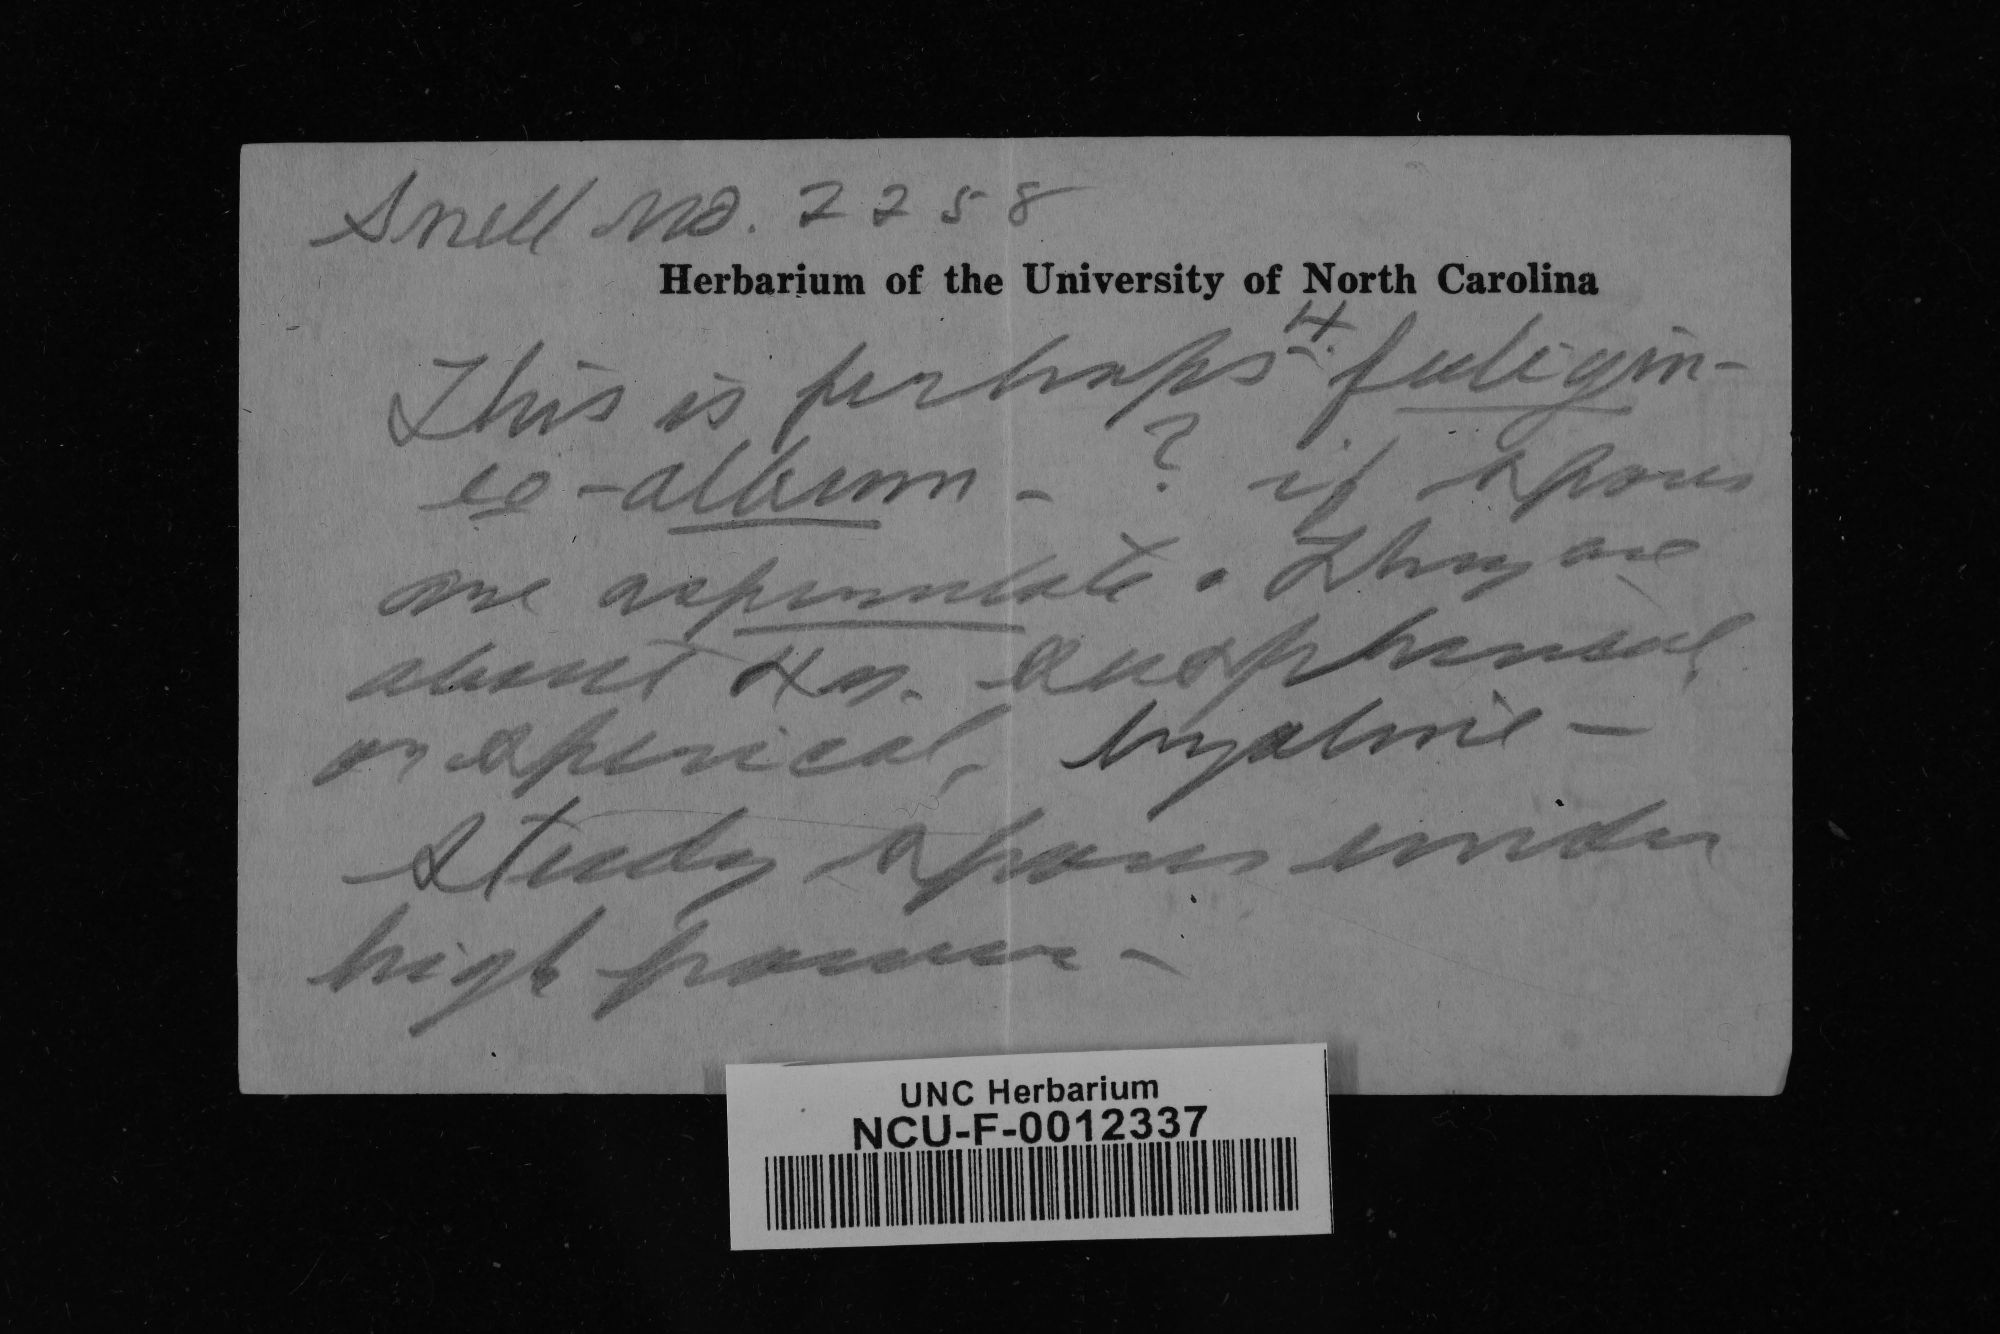 Snell No. 2258
Herbarium of the University of North Carolina
This is perhaps H. fuligin-
eo-album - ? if spores
are asperulate. They are
about 4 m.
or sperical, hyaline -
Study spores under
high power -
UNC Herbarium
NCU-F-0012337